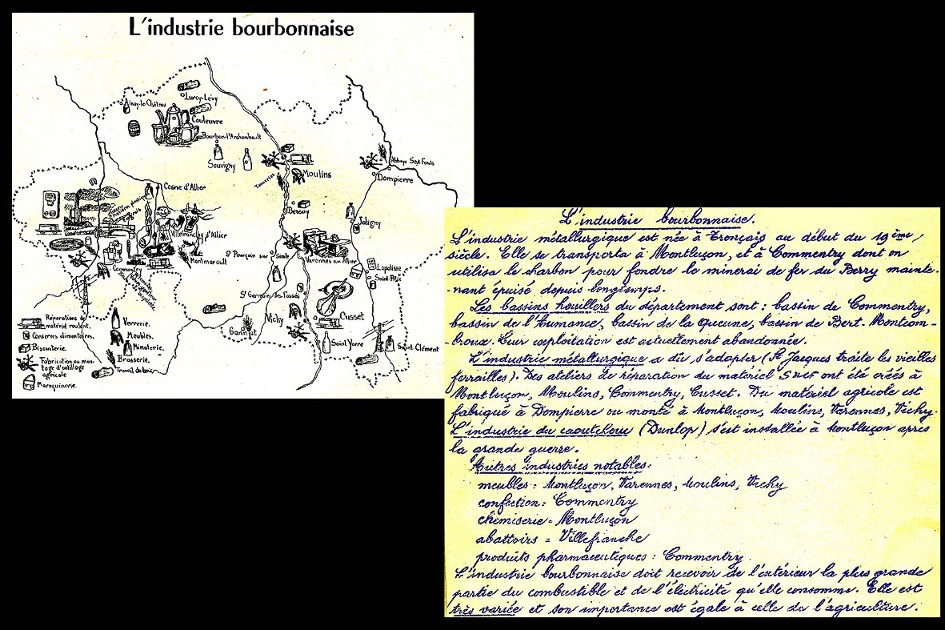 L'industrie bourbonnaise
Lurcy-Lévy
Couleuvre
Bourbon-l'Archambault
Souvigny
Moulins
Dompierre
Cosne d'Allier
Bessay
Jaligny
Montmarault
Lapalisse
St Germain des Fossés
Vichy
Gannat
Cusset
Saint Yorre
Saint Clément
Réparations de
matériel roulant.
Conserves alimentaires.
Bijouterie.
Fabrication ou mon-
tage d'outillage
agricole
Maroquinerie.
Verrerie.
Meubles.
Minoterie.
Brasserie.
Travail du bois.
L'industrie bourbonnaise.
L'industrie métallurgique est née à Tronçais au début du 19ème
siècle. Elle se transporta à Montluçon, et à Commentry dont on
utilisa le charbon pour fondre le minerai de fer du Berry mainte-
-nant épuisé depuis longtemps.
Les bassins houillers du département sont : bassin de Commentry,
bassin de l'Aumance, bassin de la Queune, bassin de Bert-Montcom-
-broux. Leur exploitation est actuellement abandonnée.
L'industrie métallurgique a dû s'adapter (St Jacques traite les vieilles
ferrailles). Des ateliers de réparation du matériel SNCF ont été créés à
Montluçon, Moulins, Commentry, Cusset. Du matériel agricole est
fabriqué à Dompierre ou monté à Montluçon, Moulins, Varennes, Vichy.
L'industrie du caoutchouc (Dunlop) s'est installée à Montluçon après
la grande guerre.
Autres industries notables:
meubles : Montluçon, Varennes, Moulins, Vichy
confection : Commentry
chemiserie = Montluçon
abattoirs = Villefranche
produits pharmaceutiques : Commentry
L'industrie bourbonnaise doit recevoir de l'extérieur la plus grande
partie du combustible et de l'électricité qu'elle consomme. Elle est
très variée et son importance est égale à celle de l'agriculture.